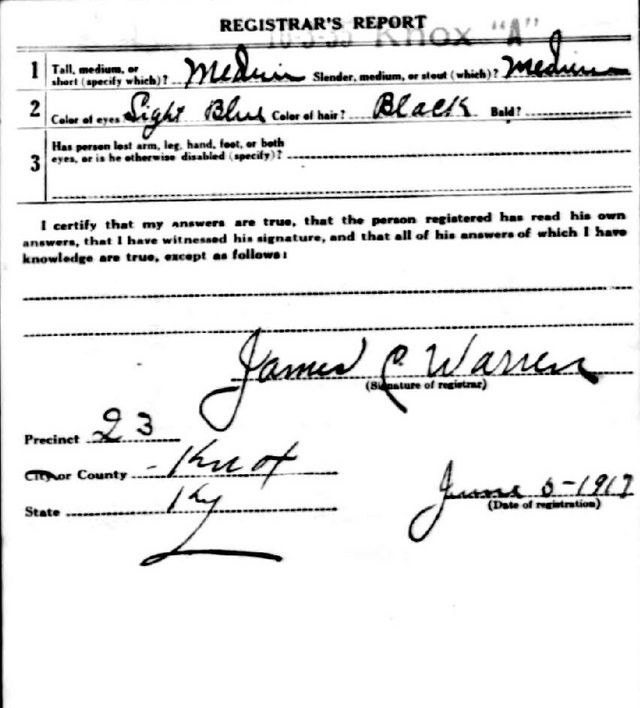 REGISTRAR'S REPORT
16-3-33 Knox "A"
1 Tall, medium, or short (specify which)? Medium Slender, medium, or stout (which)? Medium
2 Color of eyes Light Blue Color of hair? Black Bald?
3 Has person lost arm, leg, hand, foot, or both
eyes, or is he otherwise disabled (specify)?
I certify that my answers are true, that the person registered has read his own
answers, that I have witnessed his signature, and that all of his answers of which I have
knowledge are true, except as follows:
James C Warren
(Signature of registrar)
Precinct 23
City or County Knox
State Ky
June 5-1917
(Date of registration)